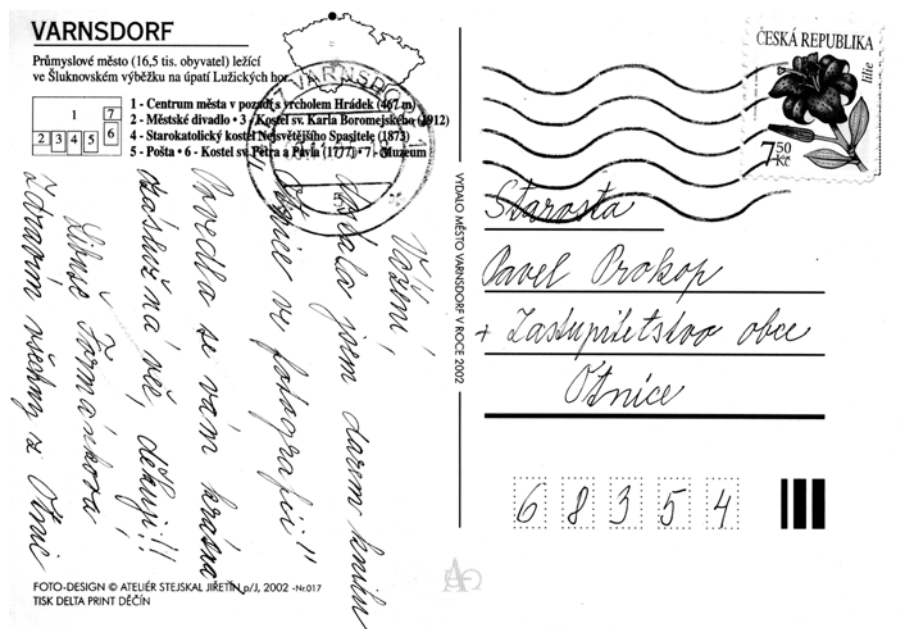 VARNSDORF
Průmyslové město (16,5 tis. obyvatel) ležící
ve Šluknovském výběžku na úpatí Lužických hor.
1 7
2 3 4 5 6
1 - Centrum města v pozadí s vrcholem Hrádek (467 m)
2 - Městské divadlo • 3 - Kostel sv. Karla Boromejského (1912)
4 - Starokatolický kostel Nejsvětějšího Spasitele (1873)
5 - Pošta • 6 - Kostel sv. Petra a Pavla (1777) • 7 - Muzeum
VARNSDORF
Vážení,
dostala jsem darem knihu
"Otnice ve fotografii"
Povedla se vám krásná
záslužná věc, děkuji!!
Libuše Formánková
Zdravím všechny z Otnic
FOTO-DESIGN © ATELIÉR STEJSKAL JIŘETÍN p/J, 2002 -Nr.017
TISK DELTA PRINT DĚČÍN
VYDALO MĚSTO VARNSDORF V ROCE 2002
ČESKÁ REPUBLIKA
lilie
7,50 Kč
Starosta
Pavel Prokop
+ Zastupitelstvo obce
Otnice
6 8 3 5 4